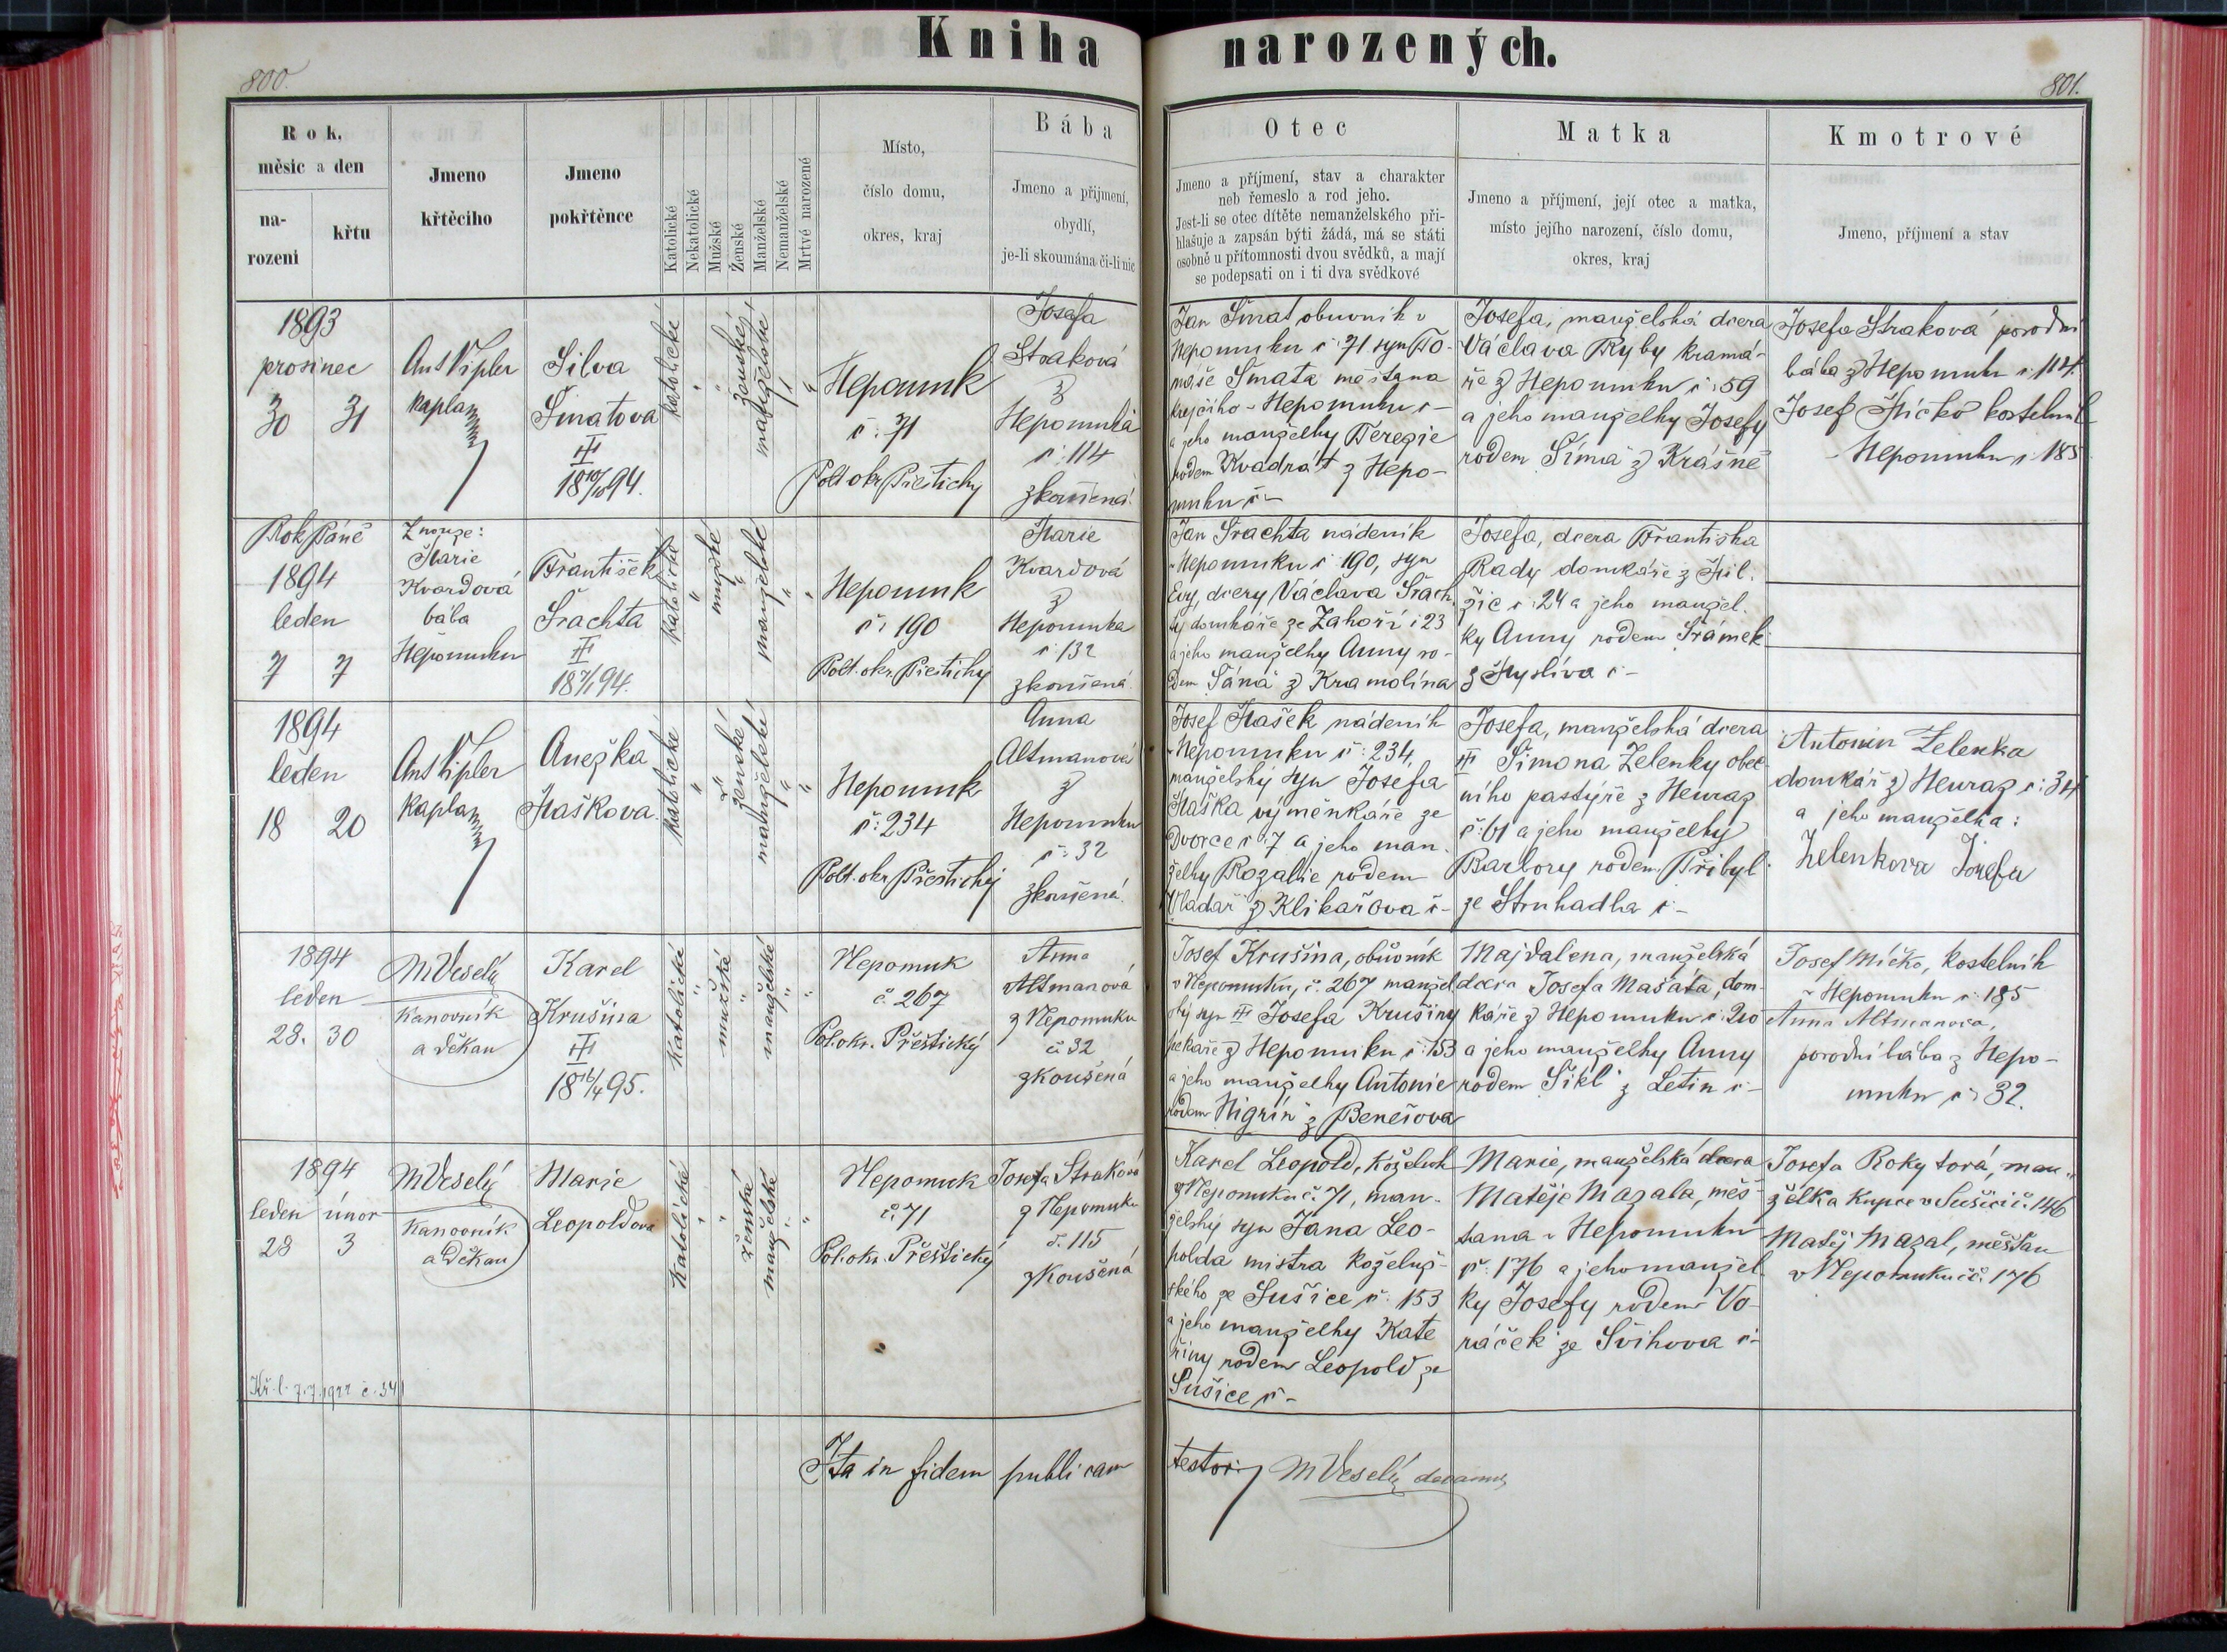 Kniha narozených.
800.
801.
Rok, měsíc a den
na-
rozeni
křtu
Jmeno
křtěcího
Jmeno
pokřtěnce
Katolické
Nekatolické
Mužské
Ženské
Manželské
Nemanželské
Mrtvé narozené
Místo,
číslo domu,
okres, kraj
Bába
Jmeno a přijmení,
obydlí,
je-li skoumána či-li nic
Otec
Jmeno a příjmení, stav a charakter
neb řemeslo a rod jeho.
Jest-li se otec dítěte nemanželského při-
hlašuje a zapsán býti žádá, má se státi
osobně u přítomnosti dvou svědků, a mají
se podepsati on i ti dva svědkové
Matka
Jmeno a příjmení, její otec a matka,
místo jejího narození, číslo domu,
okres, kraj
Kmotrové
Jmeno, příjmení a stav
1893
prosinec
30 31
Ant Vipler
kaplan
Silva
Šmatova
III
18 10/10 94.
katolické
"
ženské
manželské
"
"
Nepomuk
č: 71
Polt. okr. Přeštický
Josefa
Straková
z
Nepomuka
č: 114
zkoušená
Jan Šmat obuvník v
Nepomuku č: 71 syn To-
máše Šmata měšťana
krejčího v Nepomuku č -
a jeho manželky Terezie
rodem Kvadrát z Nepo-
muku č -
Josefa, manželská dcera
Václava Ryby kramá-
ře z Nepomuku č: 59
a jeho manželky Josefy
rodem Šíma z Krásně
Josefa Straková porodní
bába z Nepomuku č: 114.
Josef Míčko kostelník
v Nepomuku č: 185
Rok Páně
1894
leden
7 7
Z nouze:
Marie
Kvardová
bába
Nepomuku
František
Šrachta
III
18 7/1 94.
katolické
"
mužské
"
manželské
"
"
Nepomuk
č: 190
Polt. okr. Přeštický
Marie
Kvardová
z
Nepomuka
č: 132
zkoušená
Jan Šrachta nádeník
v Nepomuku č: 190, syn
Evy, dcery Václava Šrach
ty domkáře ze Zahoří č 23
a jeho manželky Anny ro-
dem Táná z Kramolína
Josefa, dcera Františka
Rady domkáře z Mil.
žic č: 24 a jeho manžel.
ky Anny rodem Šrámek
z Myslíva č -
1894
leden
18 20
Ant Vipler
kaplan
Anežka
Haškova.
katolické
"
"
ženské
manželské
"
"
Nepomuk
č: 234
Polt. okr. Přeštický
Anna
Altmanová
z
Nepomuku
č: 32
zkoušená.
Josef Hašek nádeník
v Nepomuku č: 234,
manželský syn Josefa
Haška výměnkáře ze
Dvorce č: 7 a jeho man.
želky Rozalie rodem
Vladař z Klikařova č -
Josefa, manželská dcera
III Šimona Zelenky obec
ního pastýře z Neuraz
č: 61 a jeho manželky
Barbory rodem Přibyl
ze Struhadla č -
Antonin Zelenka
domkář z Neuraz č: 34
a jeho manželka:
Zelenkova Josefa
1894
leden
28. 30
M Veselý
Kanovník
a děkan
Karel
Krušina
III
18 16/4 95.
Katolické
"
mužské
"
manželské
"
"
Nepomuk
č. 267
Pol. okr. Přeštický
Anna
Altmanová
z Nepomuku
č 32
zkoušená
Josef Krušina, obuvník
v Nepomuku, č. 267 manžel
ský syn III Josefa Krušiny
pekaře z Nepomuku č: 153
a jeho manželky Antonie
rodem Nigrin z Benešova
Majdalena, manželská
dcera Josefa Mašata, dom-
káře z Nepomuku č: 210
a jeho manželky Anny
rodem Šikl z Letin č -
Josef Míčko, kostelník
v Nepomuku č: 185
Anna Altmanova,
porodní bába z Nepo-
muku č: 32.
1894
leden únor
28 3
M Veselý
Kanovník
a Děkan
Marie
Leopoldova
Katolické
"
"
ženské
manželské
"
"
Nepomuk
č. 71
Pol. okr. Přeštický
Josefa Straková
z Nepomuku
č. 115
zkoušená
Karel Leopold, koželuh
v Nepomuku č. 71, man-
želský syn Jana Leo-
polda mistra koželuž-
ského ze Sušice č: 153
a jeho manželky Kate
řiny rodem Leopold ze
Sušice č -
Marie, manželská dcera
Matěje Mazala, měš-
ťana v Nepomuku
č: 176 a jeho manžel
ky Josefy rodem Vo-
ráček ze Švihova č -
Josefa Rokytová, man-
želka kupce v Sušici č. 146
Matěj Mazal, měšťan
v Nepomuku č. 176
Kř. l. 7.7. 1922 č. 341
Ita in fidem publicam testor M Veselý decanus